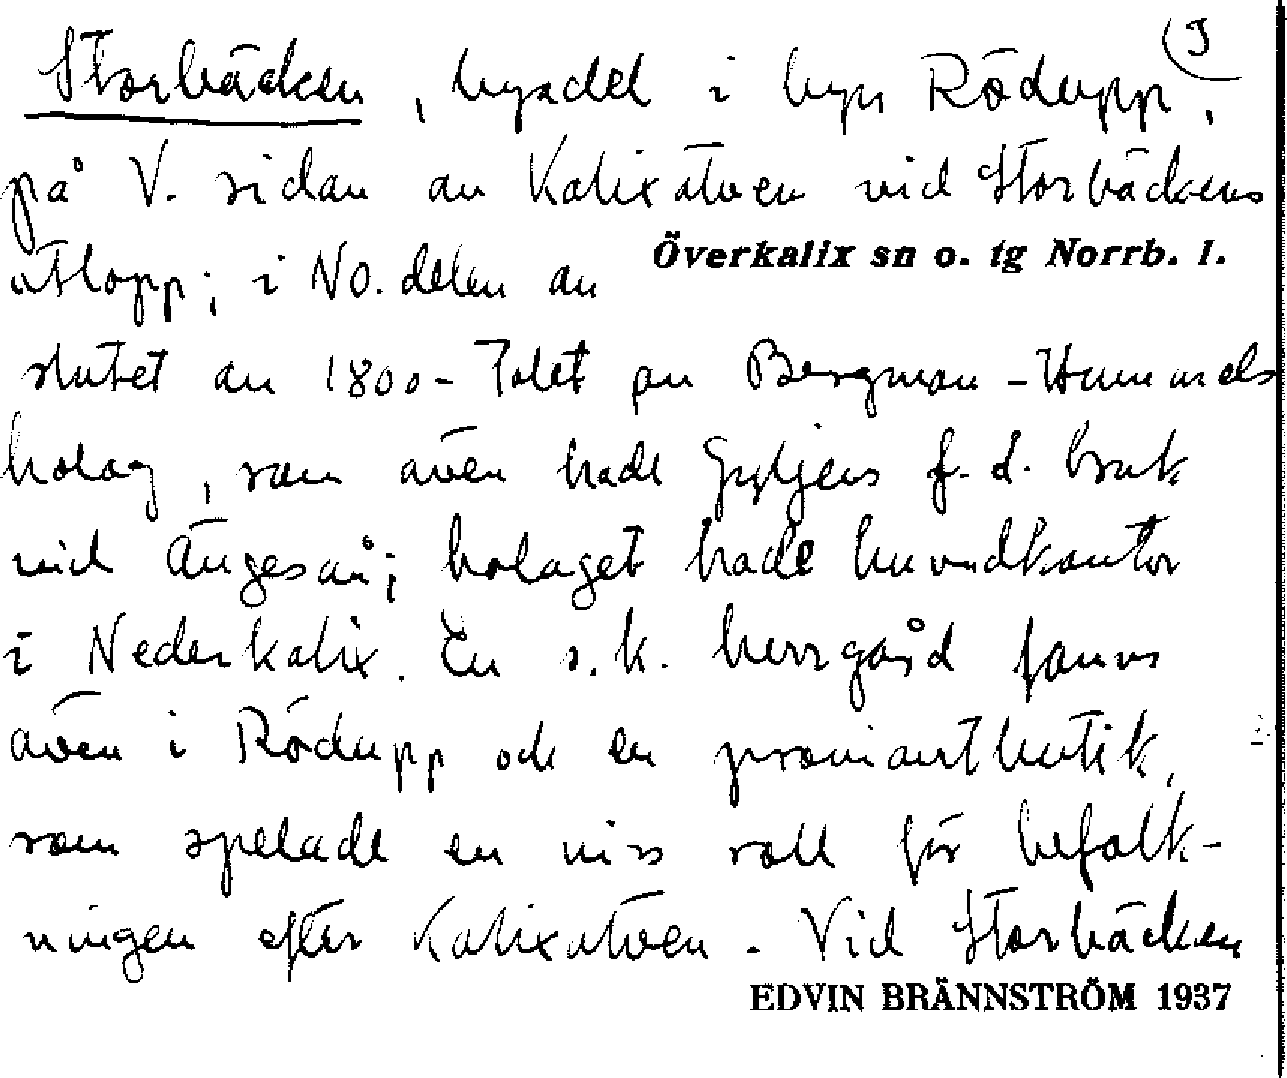 Storbäcken, bydel i byn Rödupp,
på V. sidan av Kalixälven vid Storbäckens
utlopp; i NO. delen av
Överkalix sn o. tg Norrb. l.
slutet av 1800-talet av Bergman-Hummels
bolag, som även hade Gyljens f.d. bruk
vid Ängesån; bolaget hade huvudkontor
i Nederkalix. En s.k. herrgård fanns
även i Rödupp och en proviantbutik,
som spelade en viss roll för befolk-
ningen efter Kalixälven. Vid Storbäcken
EDVIN BRÄNNSTRÖM 1937